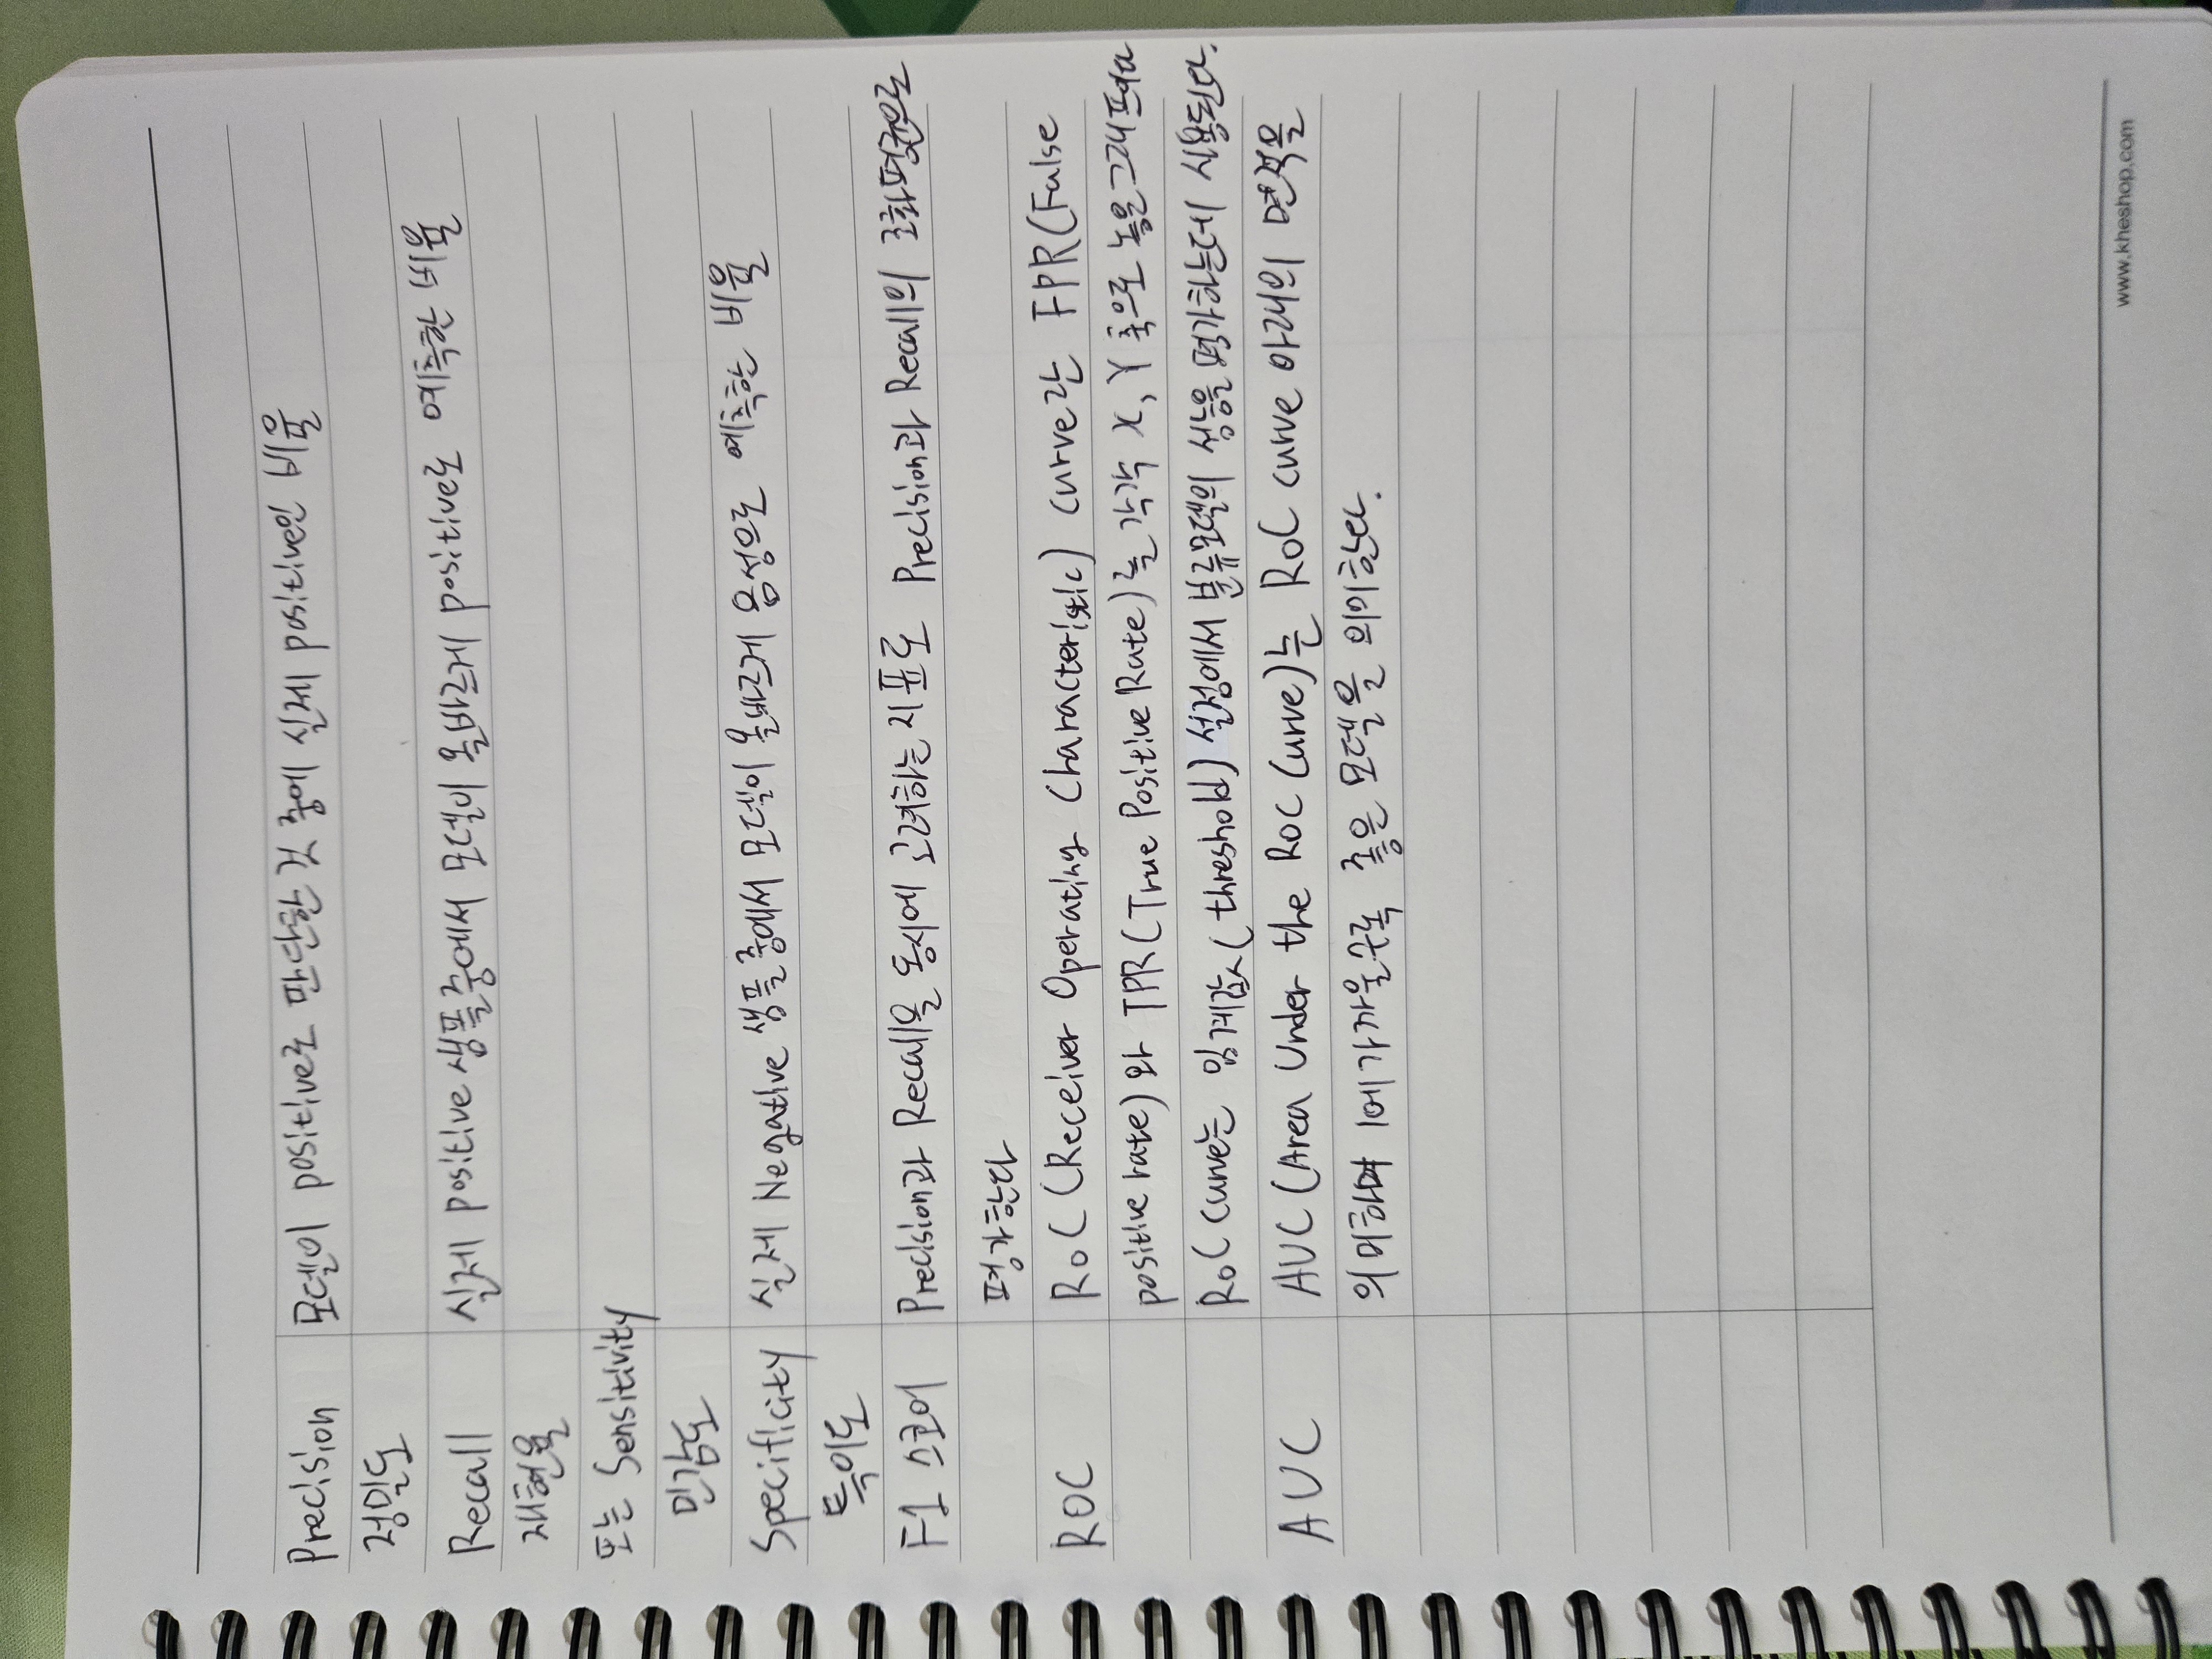 Precision 모델이 positive로 판단한 것 중에 실제 positive인 비율
정밀도
Recall 실제 positive 샘플 중에서 모델이 올바르게 positive로 예측한 비율
재현율
또는 Sensitivity
민감도
Specificity 실제 Negative 샘플 중에서 모델이 올바르게 음성으로 예측한 비율
특이도
F1 스코어 Precision과 Recall을 동시에 고려하는 지표로 Precision과 Recall의 조화평균으로
평가한다
ROC RoC (Receiver Operating Characteristic) curve란 FPR(False
positive rate)와 TPR(True Positive Rate)를 각각 X, Y 축으로 놓은 그래프이다
RoC curve는 임계값(threshold) 설정에서 분류모델의 성능을 평가하는데 사용된다.
AUC AUC (Area Under the RoC Curve)는 RoC curve 아래의 면적을
의미하며 1에 가까울수록 좋은 모델을 의미한다.
www.kheshop.com